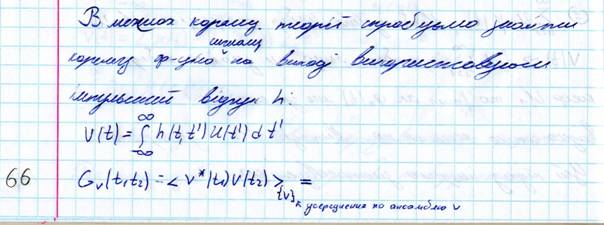 В межах корелц. теорії спробуємо знайти
сигналу
корелц ф-цію на виході використовуючи
імпульсний відгук h.
V(t) = ∫_{-∞}^{∞} h(t,t') U(t') d t'
66 G_v(t₁t₂) = <V*(t₁)V(t₂)>_{{V}} =
усереднення по ансамблю V